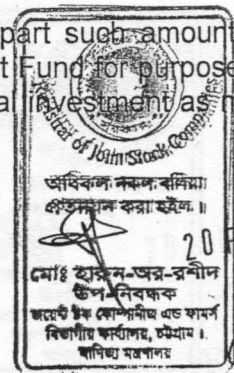 part such amount
t Fund for purpose
al investment as n
Registrar of Joint Stock Companies
অবিকল নকল বলিয়া
প্রত্যয়ন করা হইল।
20
মোঃ হারুন-অর-রশীদ
উপ-নিবন্ধক
জয়েন্ট ষ্টক কোম্পানীজ এন্ড ফার্মস
বিভাগীয় কার্যালয়, চট্টগ্রাম।
বাণিজ্য মন্ত্রণালয়